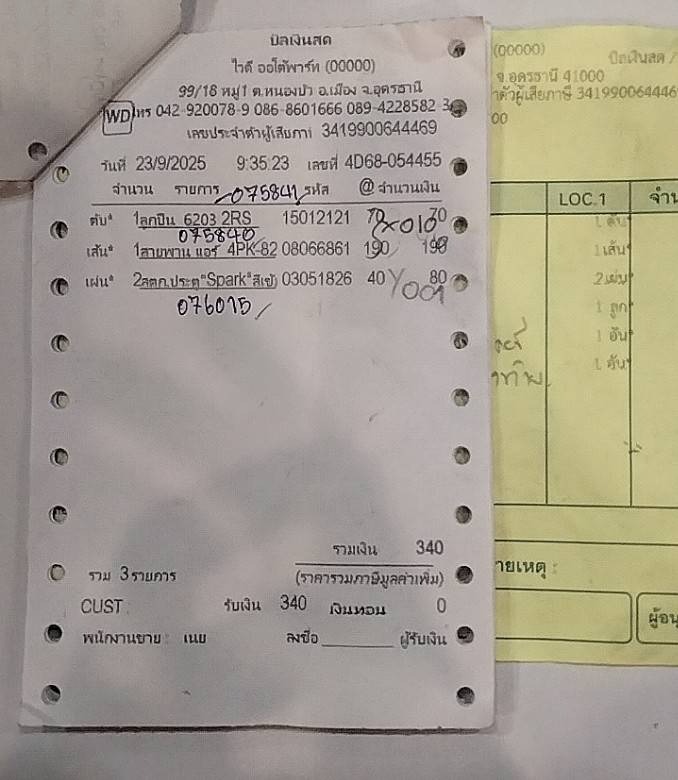 บิลเงินสด
ไวดี ออโต้พาร์ท (00000)
99/18 หมู่1 ต.หนองบัว อ.เมือง จ.อุดรธานี
WD โทร 042-920078-9 086-8601666 089-4228582
เลขประจำตัวผู้เสียภาษี 3419900644469
วันที่ 23/9/2025 9:35:23 เลขที่ 4D68-054455
จำนวน รายการ 075841 รหัส @ จำนวนเงิน
1ลูกปืน 6203 2RS 15012121 70
075840
เส้น* 1สายพาน แอร์ 4PK-82 08066861 190 190
แผ่น* 03051826 40 80
076015
รวมเงิน 340
รวม 3 รายการ (ราคารวมภาษีมูลค่าเพิ่ม)
CUST : รับเงิน 340 เงินทอน 0
พนักงานขาย : เนย ลงชื่อ________ผู้รับเงิน
(00000) บิลเงินสด /
จ.อุดรธานี 41000
จำตัวผู้เสียภาษี 341990064446
00
LOC.1
1 เส้น*
2 แผ่น*
1 ลูก*
1 อัน*
1 อัน*
ายเหตุ :
ผู้อนุ